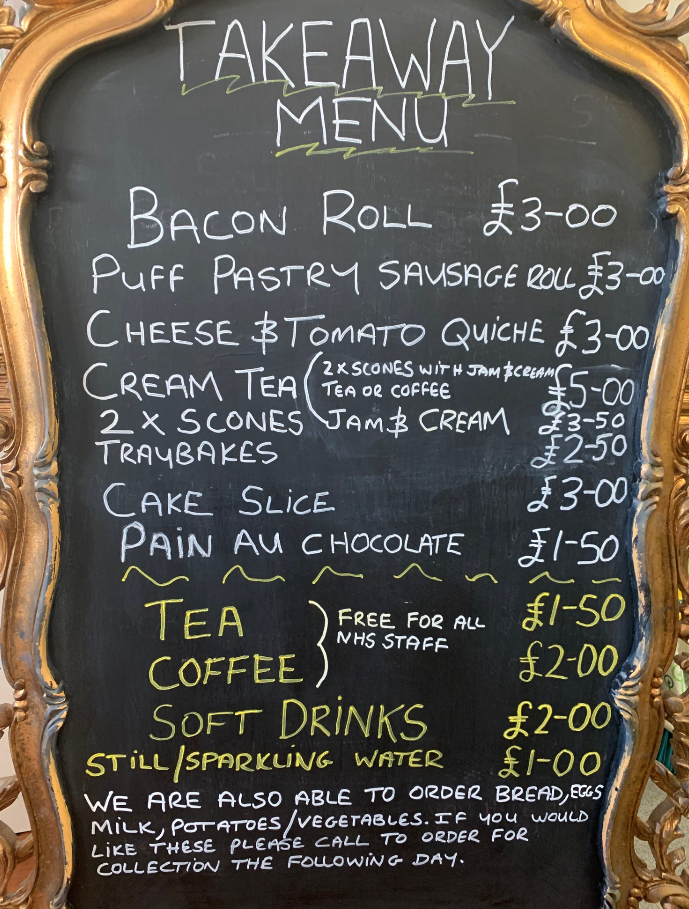 TAKEAWAY
MENU
BACON ROLL £3-00
PUFF PASTRY SAUSAGE ROLL £3-00
CHEESE & TOMATO QUICHE £3-00
CREAM TEA ( 2 X SCONES WITH JAM & CREAM TEA OR COFFEE £5-00
2 X SCONES JAM & CREAM £3-50
TRAYBAKES £2-50
CAKE SLICE £3-00
PAIN AU CHOCOLATE £1-50
TEA £1-50
} FREE FOR ALL
NHS STAFF
COFFEE £2-00
SOFT DRINKS £2-00
STILL/SPARKLING WATER £1-00
WE ARE ALSO ABLE TO ORDER BREAD, EGGS
MILK, POTATOES/VEGETABLES. IF YOU WOULD
LIKE THESE PLEASE CALL TO ORDER FOR
COLLECTION THE FOLLOWING DAY.